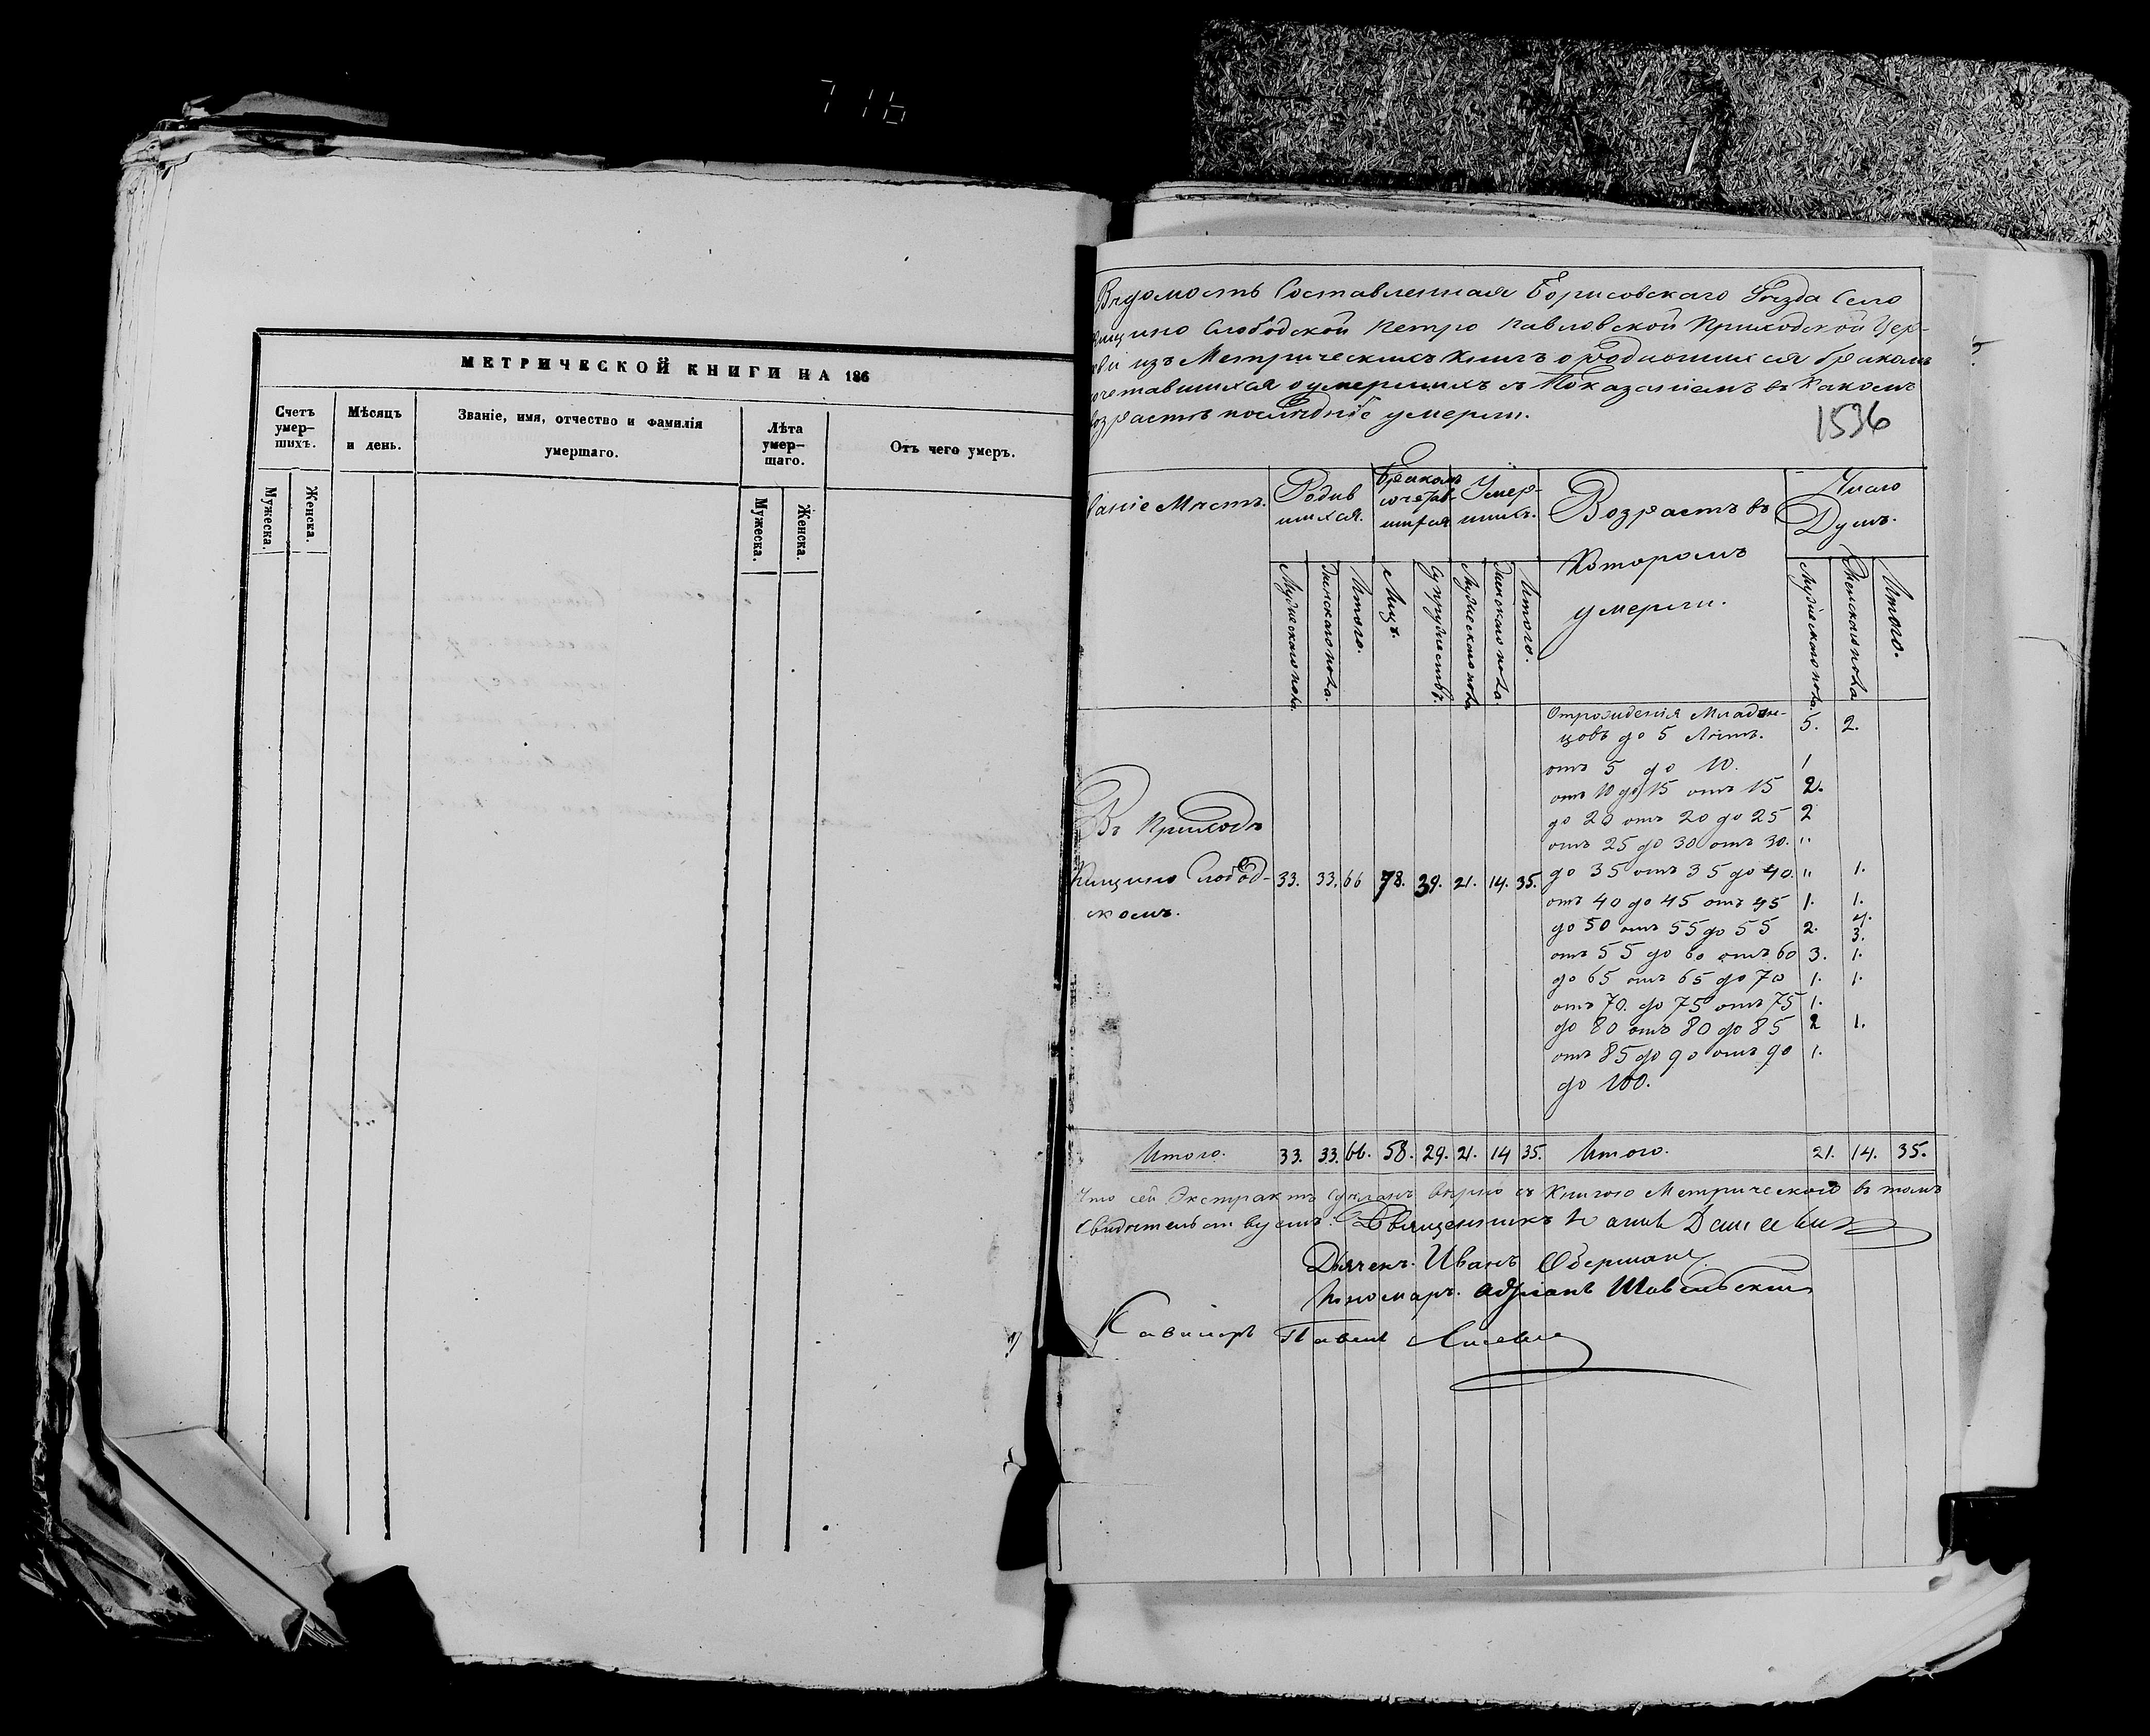 716
МЕТРИЧЕСКОЙ КНИГИ НА 186
Счетъ умер-шихъ.
Мѣсяцъ и день.
Званіе, имя, отчество и фамилія умершаго.
Лѣта умер-шаго.
Отъ чего умеръ.
Мужеска.
Женска.
Мужеска.
Женска.
Вѣдомость Составленная Борисовскаго Уѣзда Село
Слободской Петро Павловской Приходской Цер-
кви изъ Метрическихъ Книгъ о родившихся бракомъ
сочетавшихся о умершихъ съ Показаніемъ въ Какомъ
возрастѣ послѣдніе умерли.
1536
званіе Мѣстъ.
Родив шихся.
Бракомъ сочетав-шихся
Умер-шихъ.
Возрастъ въ Которомъ умерли.
Число Душъ.
Мужескаго пола.
Женскаго пола.
Итого.
Лицъ.
Супружествъ.
Мужескаго пола
Женскаго пола.
Итого.
Мужескаго пола.
Женскаго пола
Итого.
Отрожденія Младен-
цовъ до 5 Лѣтъ. 5. 2.
отъ 5 до 10. 1
отъ 10 до 15 отъ 15 2.
до 20 отъ 20 до 25 2
отъ 25 до 30 отъ 30. "
до 35 отъ 35 до 40. " 1.
отъ 40 до 45 отъ 45 1. 1.
до 50 отъ 55 до 55 2. 3.
отъ 55 до 60 отъ 60 3. 1.
до 65 отъ 65 до 70 1. 1.
отъ 70. до 75 отъ 75 1.
до 80 отъ 80 до 85 2 1.
отъ 85 до 90 отъ 90 1.
до 100.
Въ Приходѣ
Слобод- 33. 33. 66 78. 39. 21. 14. 35.
скомъ.
Итого. 33. 33. 66. 58. 29. 21. 14 35. Итого. 21. 14. 35.
Что сей Экстрактъ сдѣланъ вѣрно съ Книгою Метрическою въ томъ
Свидѣтельствуемъ: Священникъ
Дьячекъ Иванъ Оберманъ
Пономарь. Адріанъ Шавельскій
Павелъ